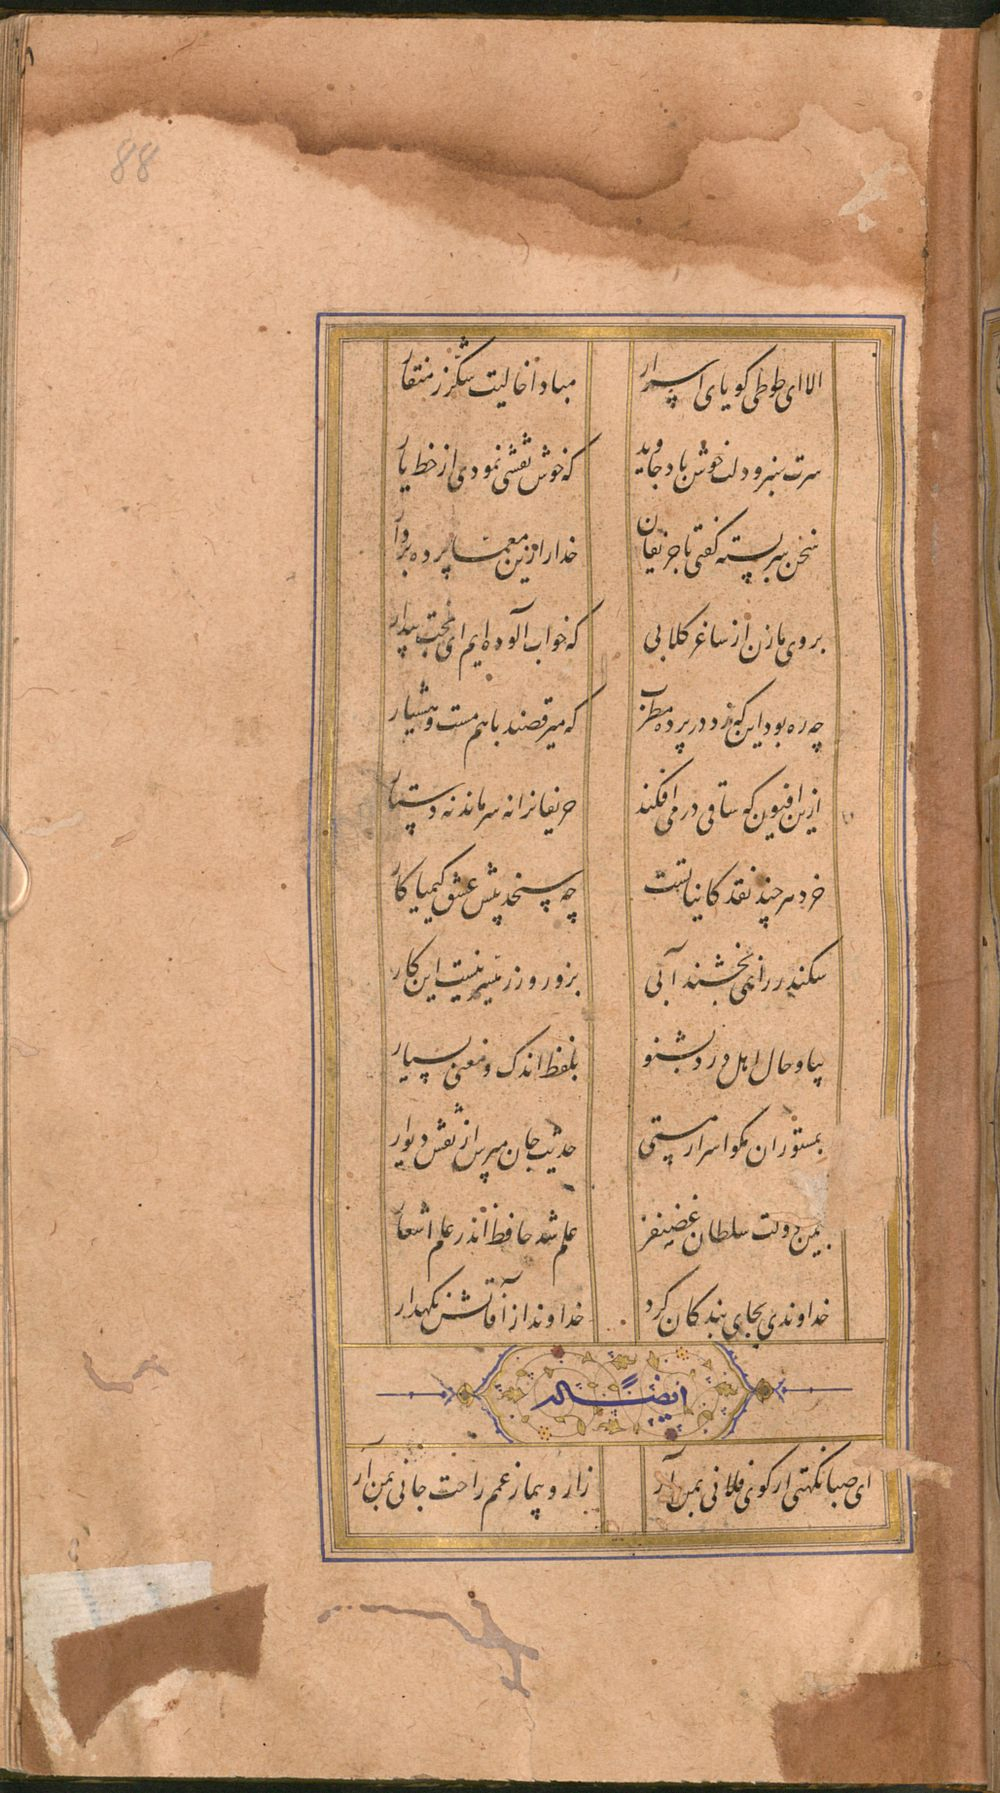 88
الا ای طوطی کویای اسرار مبادا خالیت شکّر ز منقار
سرت سبز و دلت خوش باد جاوید که خوش نقشی نمودی از خط یار
سخن سربسته کفتی با حریفان خدا را زین معمّا پرده بردار
بروی ما زن از ساغر کلابی که خواب آلوده ایم ای بخت بیدار
چه ره بود این که زد در پرده مطرب که میرقصند با هم مست و هشیار
ازین افیون که ساقی در می افکند حریفانرا نه سر ماند نه دستار
خرد هر چند نقد کایناتست چه سنجد پیش عشق کیمیاکار
سکندر را نمی بخشند آبی بزور و زر میسر نیست این کار
بیا و حال اهل درد بشنو بلفظ اندک و معنی بسیار
بمستوران مکو اسرار مستی حدیث جان مپرس از نقش دیوار
بیمن دولت سلطان غضنفر علم شد حافظ اندر علم اشعار
خداوندی بجای بندکان کرد خداوندا ز آفاتش نکهدار
ایضاً له
ای صبا نکهتی از کوی فلانی بمن آر زار و بیمار غمم راحت جانی بمن آر